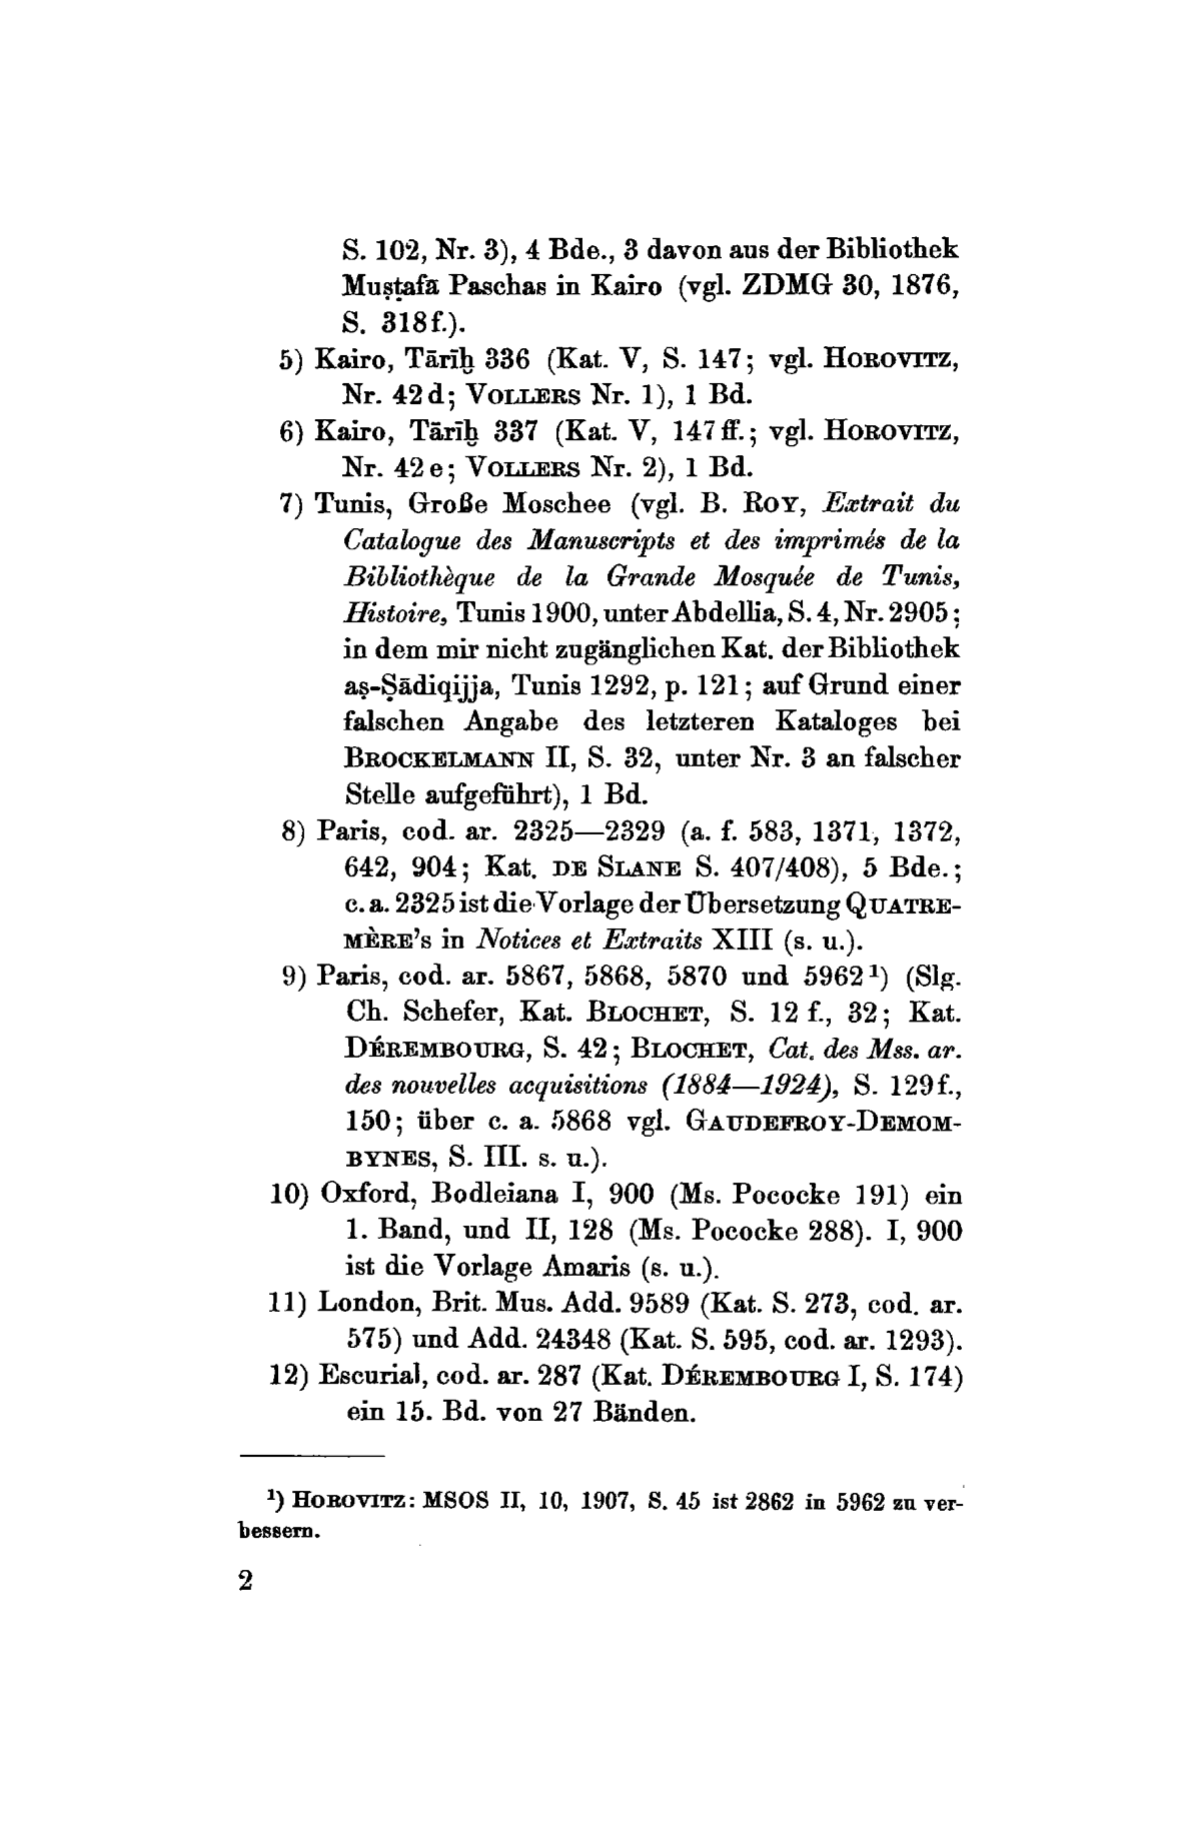 S. 102, Nr. 3), 4 Bde., 3 davon aus der Bibliothek
Muṣṭafā Paschas in Kairo (vgl. ZDMG 30, 1876,
S. 318f.).
5) Kairo, Tārīḫ 336 (Kat. V, S. 147; vgl. HOROVITZ,
Nr. 42 d; VOLLERS Nr. 1), 1 Bd.
6) Kairo, Tārīḫ 337 (Kat. V, 147 ff.; vgl. HOROVITZ,
Nr. 42 e; VOLLERS Nr. 2), 1 Bd.
7) Tunis, Große Moschee (vgl. B. ROY, Extrait du
Catalogue des Manuscripts et des imprimés de la
Bibliothèque de la Grande Mosquée de Tunis,
Histoire, Tunis 1900, unter Abdellia, S. 4, Nr. 2905;
in dem mir nicht zugänglichen Kat. der Bibliothek
aṣ-Ṣādiqijja, Tunis 1292, p. 121; auf Grund einer
falschen Angabe des letzteren Kataloges bei
BROCKELMANN II, S. 32, unter Nr. 3 an falscher
Stelle aufgeführt), 1 Bd.
8) Paris, cod. ar. 2325—2329 (a. f. 583, 1371, 1372,
642, 904; Kat. DE SLANE S. 407/408), 5 Bde.;
c. a. 2325 ist die Vorlage der Übersetzung QUATRE-
MÈRE's in Notices et Extraits XIII (s. u.).
9) Paris, cod. ar. 5867, 5868, 5870 und 5962 ¹) (Slg.
Ch. Schefer, Kat. BLOCHET, S. 12 f., 32; Kat.
DÉREMBOURG, S. 42; BLOCHET, Cat. des Mss. ar.
des nouvelles acquisitions (1884—1924), S. 129 f.,
150; über c. a. 5868 vgl. GAUDEFROY-DEMOM-
BYNES, S. III. s. u.).
10) Oxford, Bodleiana I, 900 (Ms. Pococke 191) ein
1. Band, und II, 128 (Ms. Pococke 288). I, 900
ist die Vorlage Amaris (s. u.).
11) London, Brit. Mus. Add. 9589 (Kat. S. 273, cod. ar.
575) und Add. 24348 (Kat. S. 595, cod. ar. 1293).
12) Escurial, cod. ar. 287 (Kat. DÉREMBOURG I, S. 174)
ein 15. Bd. von 27 Bänden.
¹) HOROVITZ: MSOS II, 10, 1907, S. 45 ist 2862 in 5962 zu ver-
bessern.
2